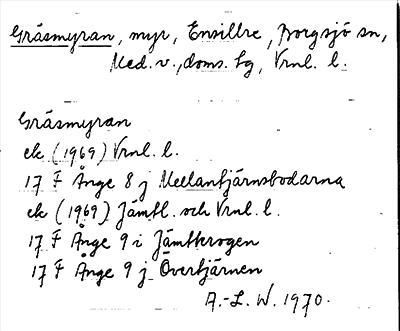 Gräsmyran, myr, Ensillre, Borgsjö sn,
Med. v., doms. lg, Vrnl. l.
Gräsmyran
ek (1969) Vrnl. l.
17 F Ånge 8 j Mellantjärnsbodarna
ek (1969) Jämtl. och Vrnl. l.
17 F Ånge 9 i Jämtkrogen
17 F Ånge 9 j Övertjärnen
A.-L. W. 1970.